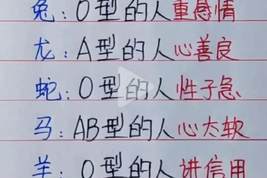 兔:O型的人重感情
龙:A型的人心善良
蛇:O型的人性子急
马:AB型的人心太软
羊:O型的人讲信用